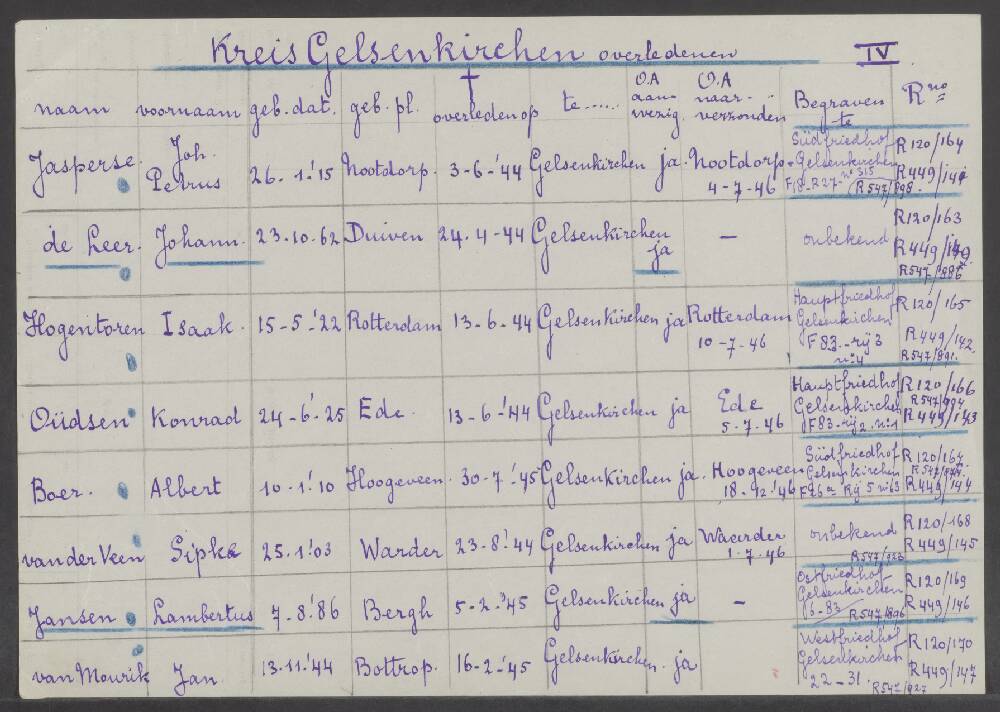 Kreis Gelsenkirchen overledenen IV
naam voornaam geb. dat. geb. pl. † overleden op te...... O.A aanwezig. O.A naar verzonden Begraven te R no
Jasperse. Joh. Petrus 26. 1.'15 Nootdorp. 3-6-'44 Gelsenkirchen ja. Nootdorp. 4-7-46 Südfriedhof Gelsenkirchen F18-R27- no 315 R120/164 R449/141 R547/898.
de Leer. Johann. 23.10.62 Duiven 24.4-44 Gelsenkirchen ja — onbekend R120/163 R449/140 R547/886
Hogentoren Isaak. 15-5-'22 Rotterdam 13-6-44 Gelsenkirchen ja Rotterdam 10-7-46 Hauptfriedhof Gelsenkirchen F83-rij 3 no 4 R120/165 R449/142. R547/891.
Oüdsen Konrad 24-6-'25 Ede. 13-6-'44 Gelsenkirchen ja Ede 5-7-46 Hauptfriedhof Gelsenkirchen F83-rij 2 no 1 R120/166 R547/894 R449/143
Boer. Albert 10-1-'10 Hoogeveen. 30-7-'45 Gelsenkirchen ja. Hoogeveen 18-12-'46 Südfriedhof Gelsenkirchen F26a Rij 5 no 63 R120/167 R449/144
van der Veen Sipke 25.1.'03 Warder 23-8-'44 Gelsenkirchen ja Waerder 1-7-46 onbekend R120/168 R449/145 R547/923
Jansen Lambertus 7-8-'86 Bergh 5-2-'45 Gelsenkirchen ja — Ostfriedhof Gelsenkirchen 6-83 R120/169 R449/146 R547/896
van Mourik Jan. 13-11-'44 Bottrop. 16-2-'45 Gelsenkirchen. ja Westfriedhof Gelsenkirchen 22-31. R120/170 R449/147 R547/927